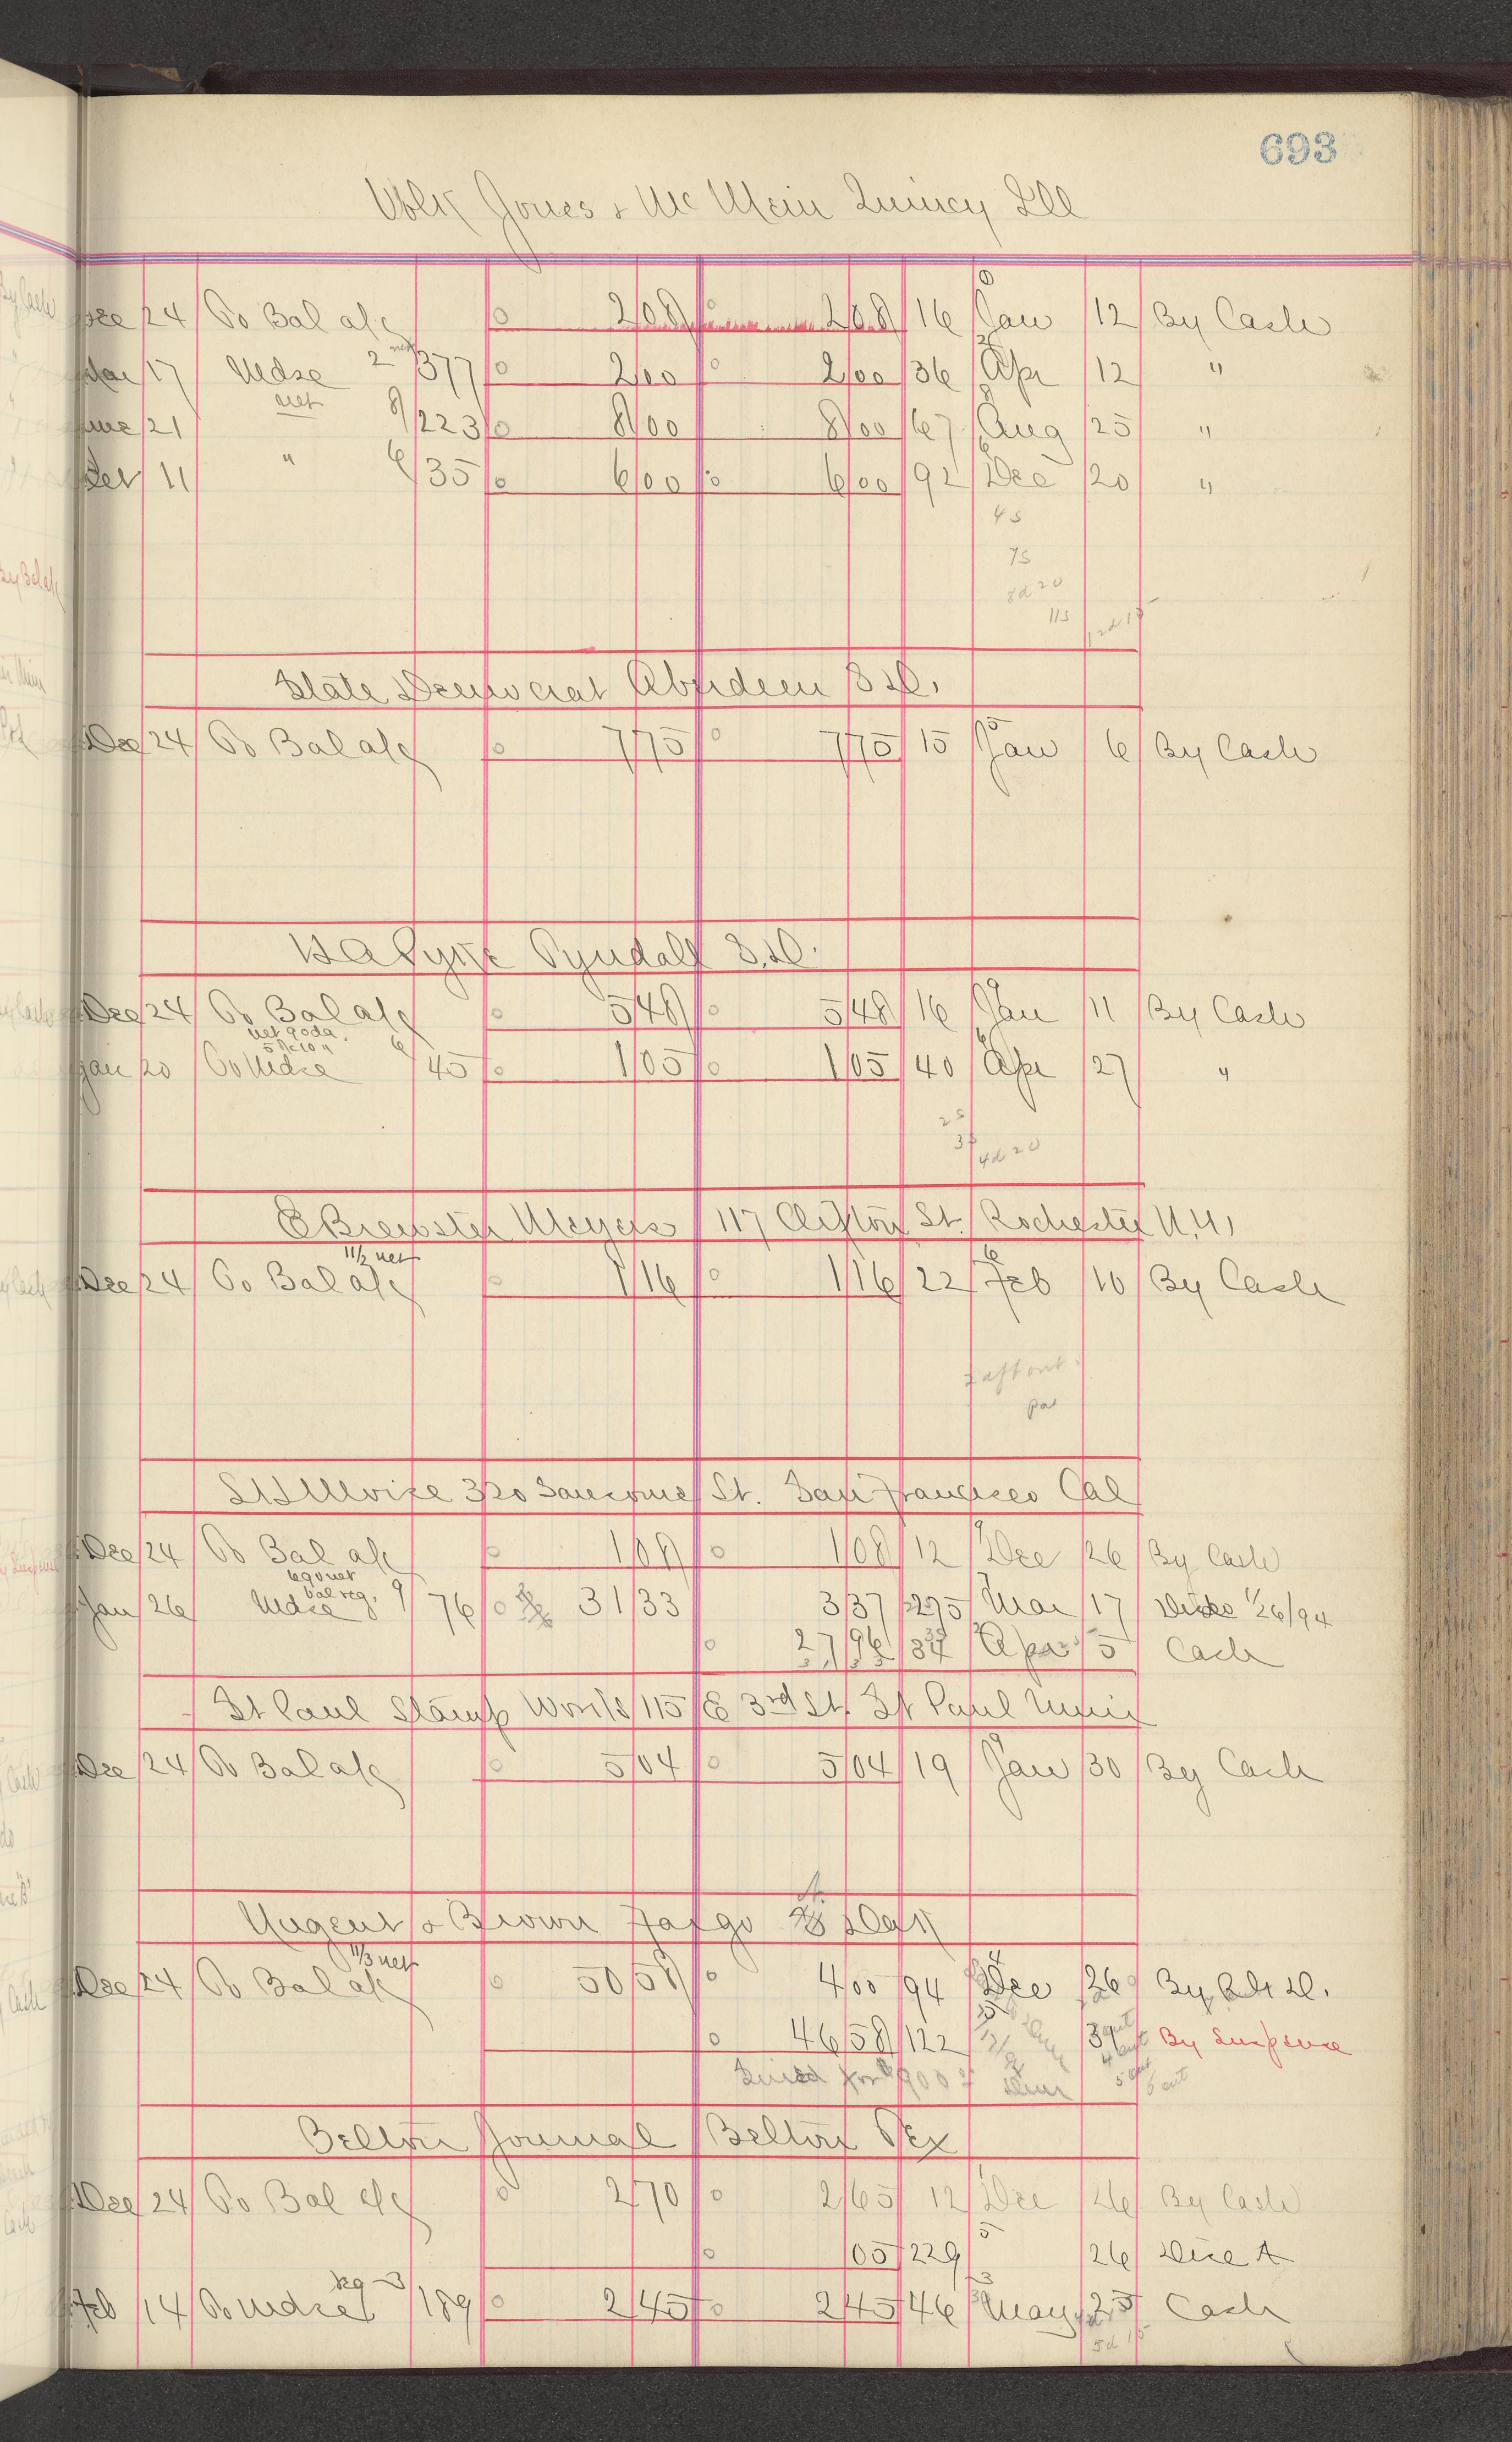 693
Volk Jones & Mc Mein Quincy Ill
Dec 24 To Bal a/c 2 08 2 08 16 Jan 12 By Cash
Mar 17 Mdse 2 net 377 2 00 2 00 36 Apr 12 "
June 21 net 8 223 8 00 8 00 67 Aug 25 "
Oct 11 " 6 35 6 00 6 00 92 Dec 20 "
4 s
7s
8d 20
11s
State Democrat Aberdeen S.D.
Dec 24 To Bal a/c 7 75 7 75 15 Jan 6 By Cash
Tyndall S.D.
Dec 24 To Bal a/c 5 48 5 48 16 Jan 11 By Cash
Jan 20 To Mdse 6 45 1 05 1 05 40 Apr 27 "
2s
4d 20
E Brewster Meyers 117 Clifton St. Rochester N.Y.
11/2 net
Dec 24 To Bal a/c 1 16 1 16 22 Feb 10 By Cash
320 Sansome St. San Francisco Cal
Dec 24 To Bal a/c 1 08 1 08 12 Dec 26 By Cash
Jan 26 Mdse 9 76 31 33 3 37 275 Mar 17 Disc 1/26/94
27 96 Apr 5 Cash
St Paul Stamp Works 115 E 3rd St. St Paul Minn
Dec 24 To Bal a/c 5 04 5 04 19 Jan 30 By Cash
Nugent & Brown Fargo Dak
11/3 net
Dec 24 To Bal a/c 50 58 4 00 94 Dec 26
46 58 122 By Suspense
Belton Journal Belton Tex
Dec 24 To Bal a/c 2 70 2 65 12 Dec 26 By Cash
05 229 26 Disc A
Feb 14 To Mdse 189 2 45 2 45 46 May 25 Cash
5d 15